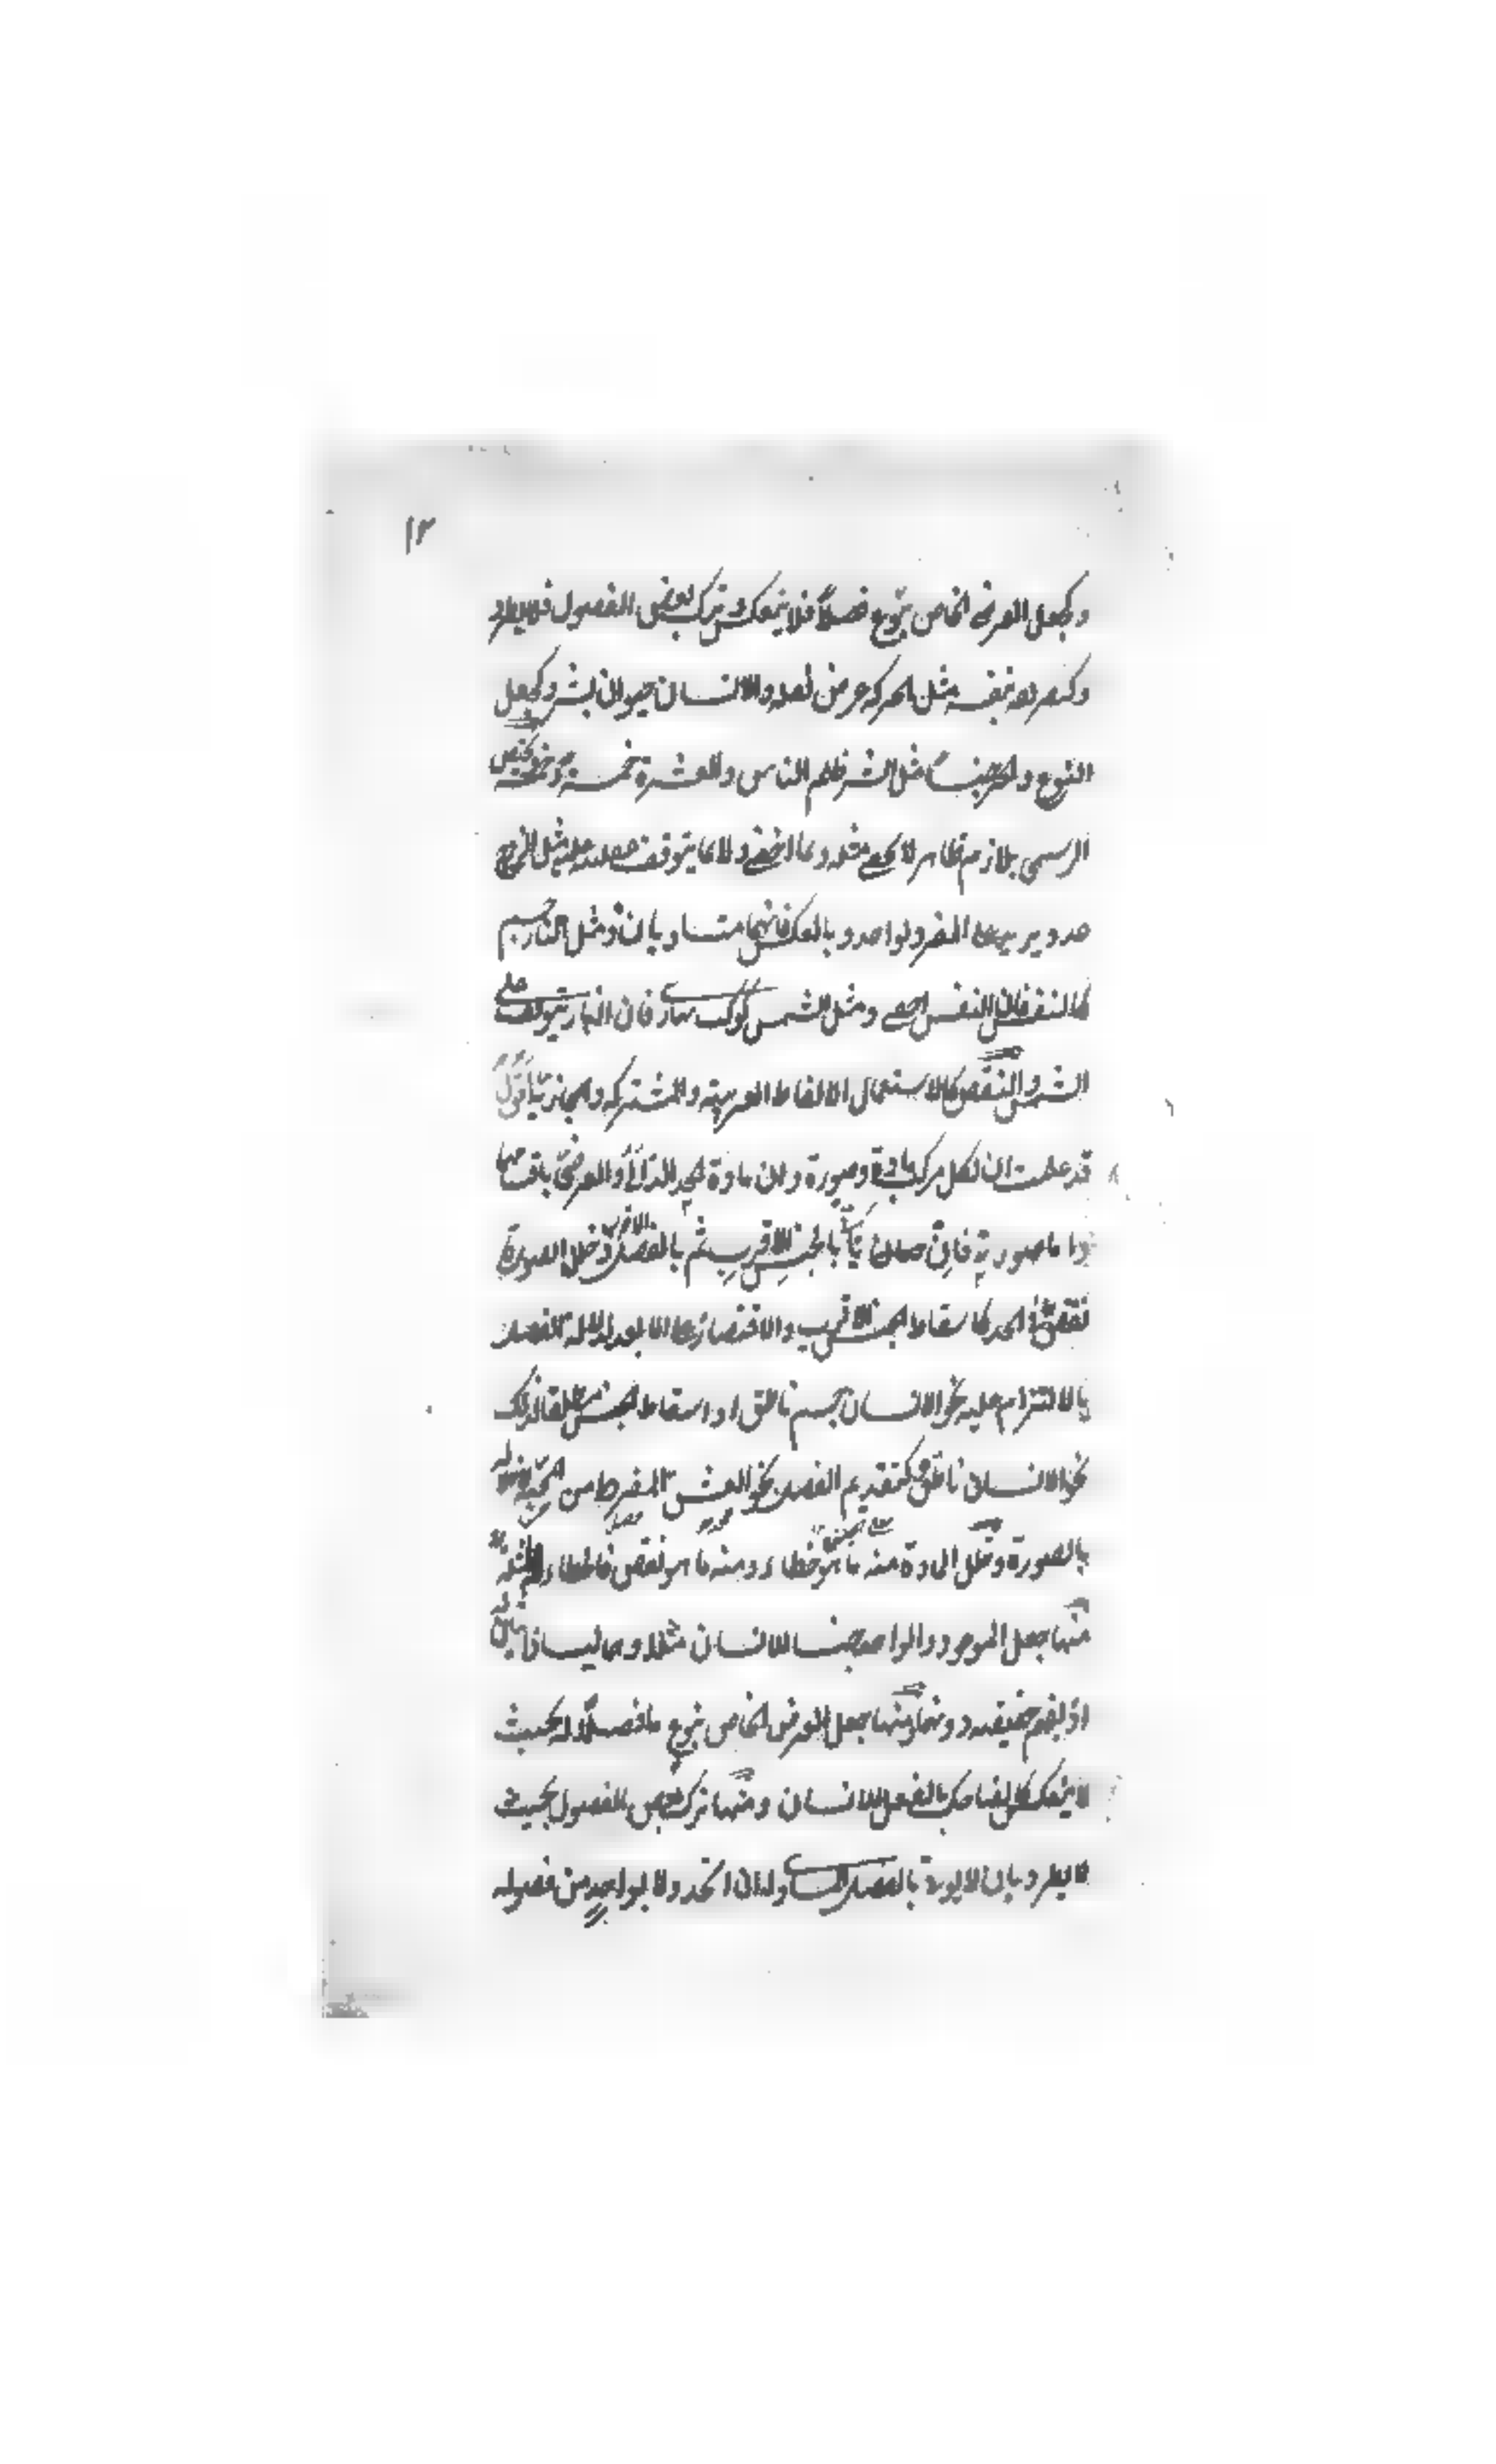 ١٣
وكجعل العرضي الخاص بنوع فصلاً فلا ينعكس وترك بعض الفصول فلا يطرد
وكتعريفه بنفسه مثل الحركة عرض نقلة والانسان حيوان بشر وكجعل
النوع والجزء جنسا مثل الشر ظلم الناس والعشرة خمسة وخمسة ويختص
الرسمي بلازم ظاهر لا بخفي مثله ولا اخفى ولا بما يتوقف عقليته عليه مثل الزوج
عدد يزيد على الفرد بواحد وبالعكس فانهما متساويان ومثل النار جسم
كالنفس فان النفس اخفى ومثل الشمس كوكب نهاري فان النهار يتوقف على
الشمس والنقص كالاستعمال الالفاظ الغريبة والمشتركة والمجازية اقول
قد علمت ان لكل مركب مادة وصورة وان مادة الحد الذاتي والعرضي باقسامها
واما صورته فان بالجنس الاقرب ثم بالفصل وخلل الصورة
نقص في الحد كاسقاط الجنس الاقرب والاقتصار على الابعد لدلالة الفصل
بالالتزام عليه نحو الانسان جسم ناطق او اسقاط الجنس مطلقا لذلك
نحو الانسان ناطق وكتقديم الفصل نحو العشق المفرط من المحبة
بالصورة وخلل المادة منه ما هو خطاء ومنه ما هو نقص فالخطاء
منها جعل الموجود والواحد جنسا للانسان مثلا وهما ليسا ذاتيين
اذ يفهم حقيقته دونهما ومنها جعل العرض الخاص بنوع ما فصلاً له بحيث
لا ينعكس كالضاحك بالفعل للانسان ومنها ترك بعض الفصول بحيث
لا يطرد بان لا يورد بالفصل المساوي ان اتحد ولا بواحد من فصوله